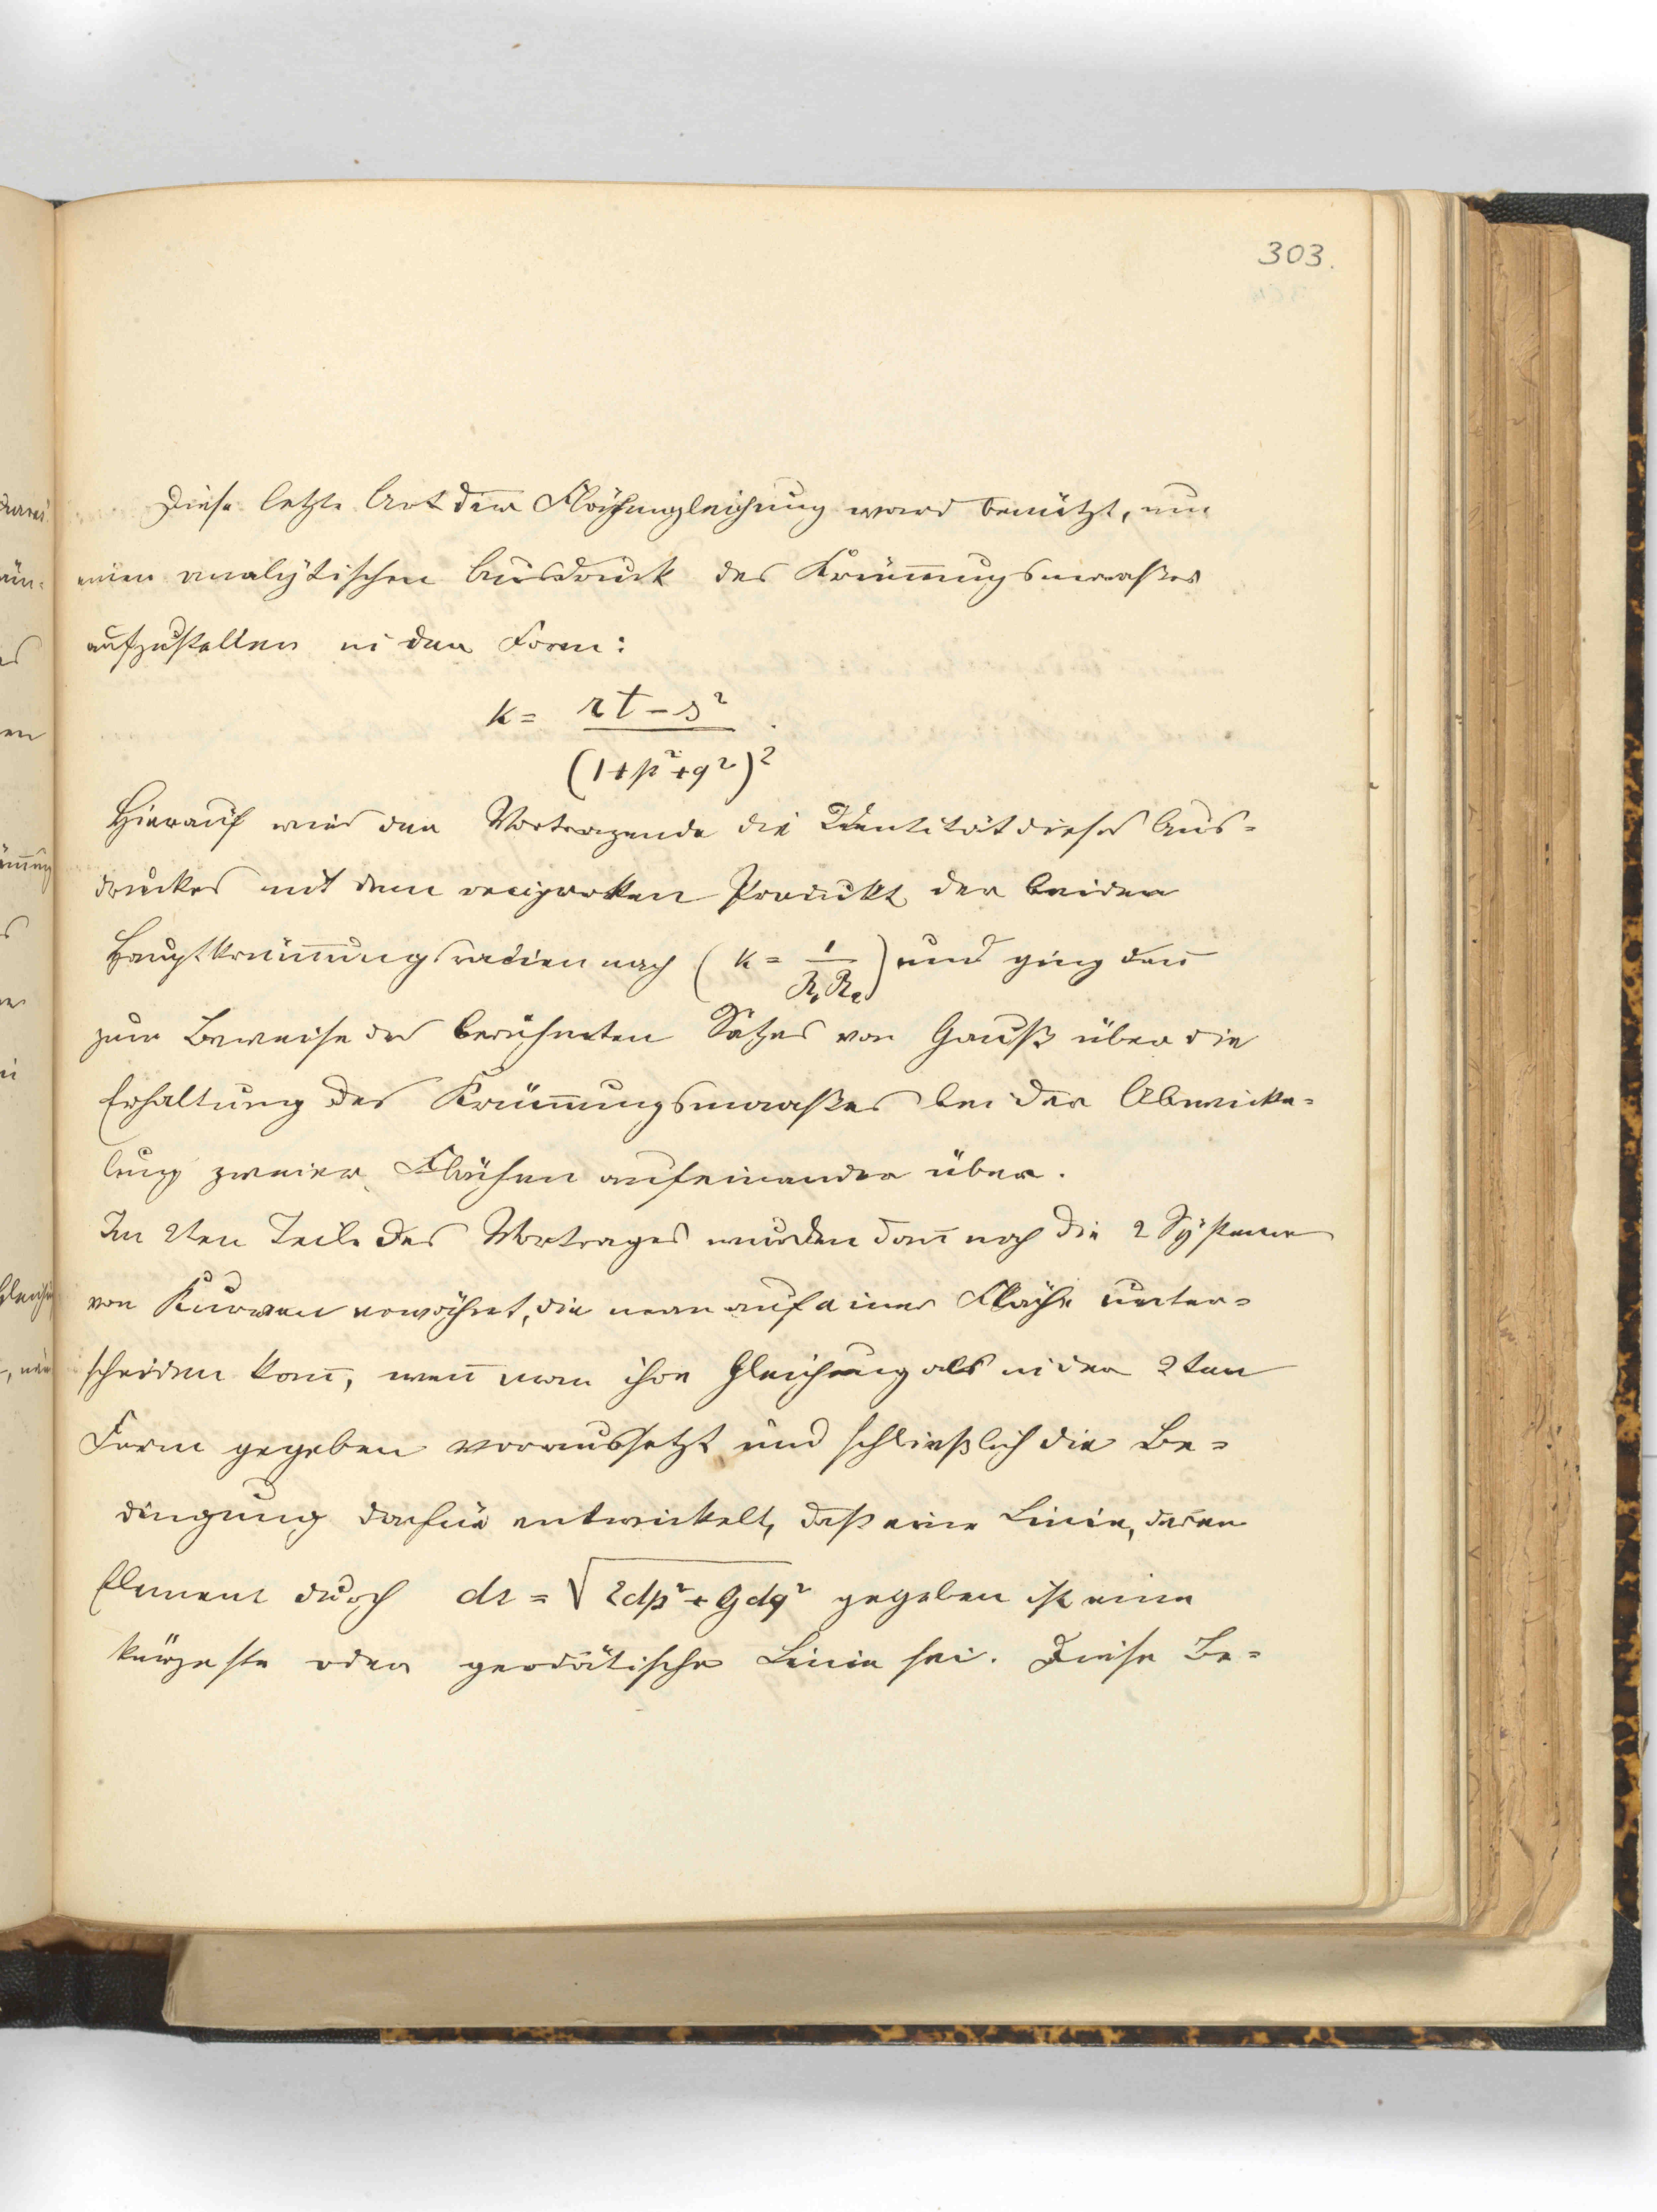 303.
Diese letzte Art der Flächengleichung ward benützt, um
einen analytischen Ausdruck des Krümmungsmaaßes
aufzustellen in der Form:
k = rt - s²
(1+p²+q²)²
Hierauf wies der Vortragende die Identität dieses Aus-
druckes mit dem reciproken Produkt der beiden
Hauptkrümmungsradien nach (k = 1/R₁R₂) und ging dann
zum Beweise des berühmten Satzes von Gauß über die
Erhaltung des Krümmungsmaaßes bei der Abwicke-
lung zweier Flächen aufeinander über.
Im 2ten Teile des Vortrages wurden dann noch die 2 Systeme
von Kurven erwähnt, die man auf einer Fläche unter-
scheiden kann, wenn man ihre Gleichung als in der 2ten
Form gegeben voraussetzt und schließlich die Be-
dingung dafür entwickelt, daß eine Linie, deren
Element durch ds = √(Edp² + Gdq²) gegeben ist eine
kürzeste oder geodätische Linie sei. Diese Be-